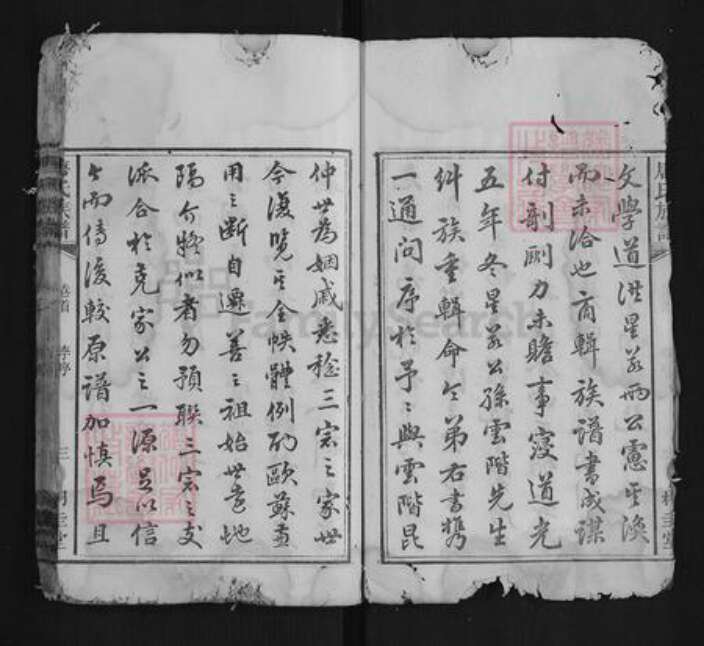 文學道洪星若兩公慮其渙
而未洽也商輯族譜書成謀
付剞劂力未贍事寢道光
五年冬星若公孫雲階先生
糾族重輯命令弟右書攜
一通問序於予予與雲階昆
仲世為姻戚悉稔三宗之家世
今復覽其全帙體例酌歐蘇並
用之斷自遷善之祖始世遠地
隔介疑似者勿預聯三宗之支
派合於堯家公之一源足以信
今而傳後較原譜加慎焉且
周氏族譜
卷首
三
FamilySearch